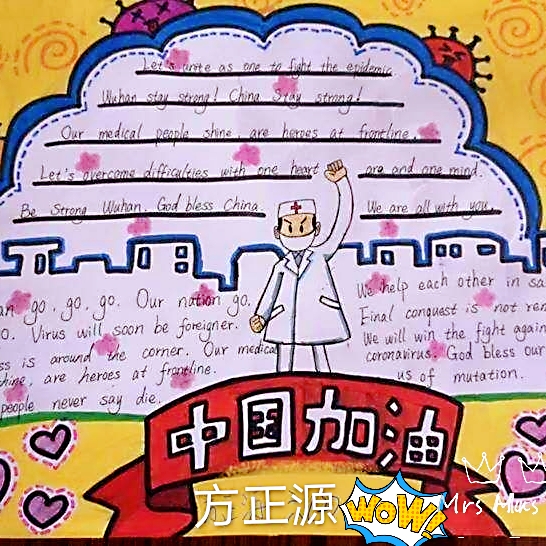 Let's unite as one to fight the epidemic
Wuhan stay strong! China Stay strong!
Our medical people shine, are heroes at frontline.
Let's overcome difficulties with one heart are and one mind.
Be Strong Wuhan. God bless China. We are all with you.
an go, go, go. Our nation go,
o. Virus will soon be foreigner.
ss is around the corner. Our medical
shine, are heroes at frontline.
people never say die.
We help each other in sa
Final conquest is not ren
We will win the fight again
coronavirus. God bless our
us of mutation.
中国加油
方正源
WOW!
Mrs